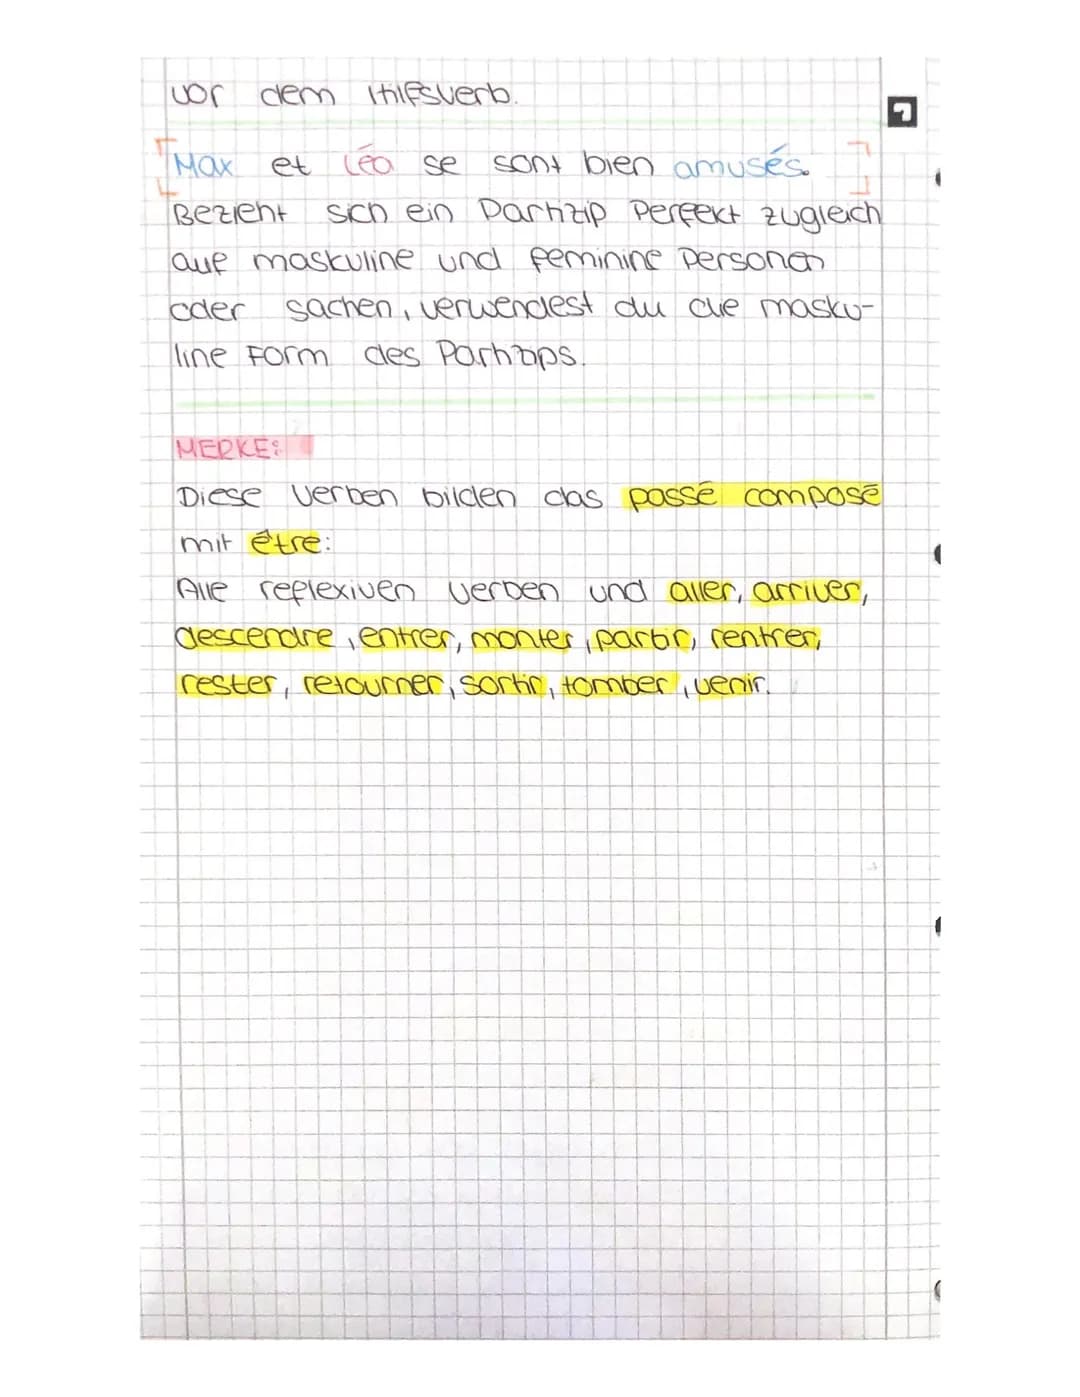 vor dem Hilfsverb.
Max et Léa se sont bien amusés.
Bezieht sich ein Partizip Perfekt zugleich
auf maskuline und feminine Personen
oder Sachen, verwendest du die masku-
line Form des Partizips.
MERKE:
Diese Verben bilden das passé composé
mit être:
Alle reflexiven Verben und aller, arriver,
descendre, entrer, monter, partir, rentrer,
rester, retourner, sortir, tomber, venir.